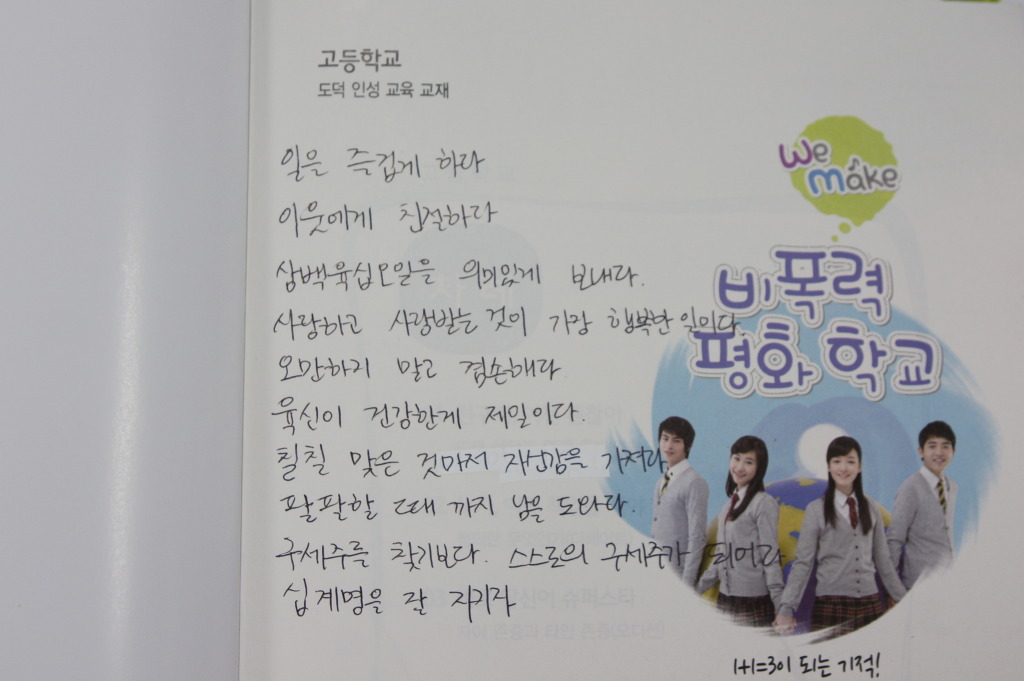 고등학교
도덕 인성 교육 교재
We
make
비폭력
평화 학교
일을 즐겁게 하라
이웃에게 친절하라
삼백육십오일을 의미있게 보내라.
사랑하고 사랑받는 것이 가장 행복한 일이다.
오만하지 말고 겸손해라
육신이 건강한게 제일이다.
칠칠 맞은 것마저 자신감을 가져라.
팔팔할 때 까지 남을 도와라.
구세주를 찾기보다. 스스로의 구세주가 되어라
십계명을 잘 지키라
1+1=3이 되는 기적!